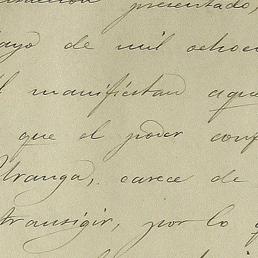 presentado,
mayo de mil ochoc
manifiestan aque
que el poder conf
tranga, carece de
transigir, por lo q